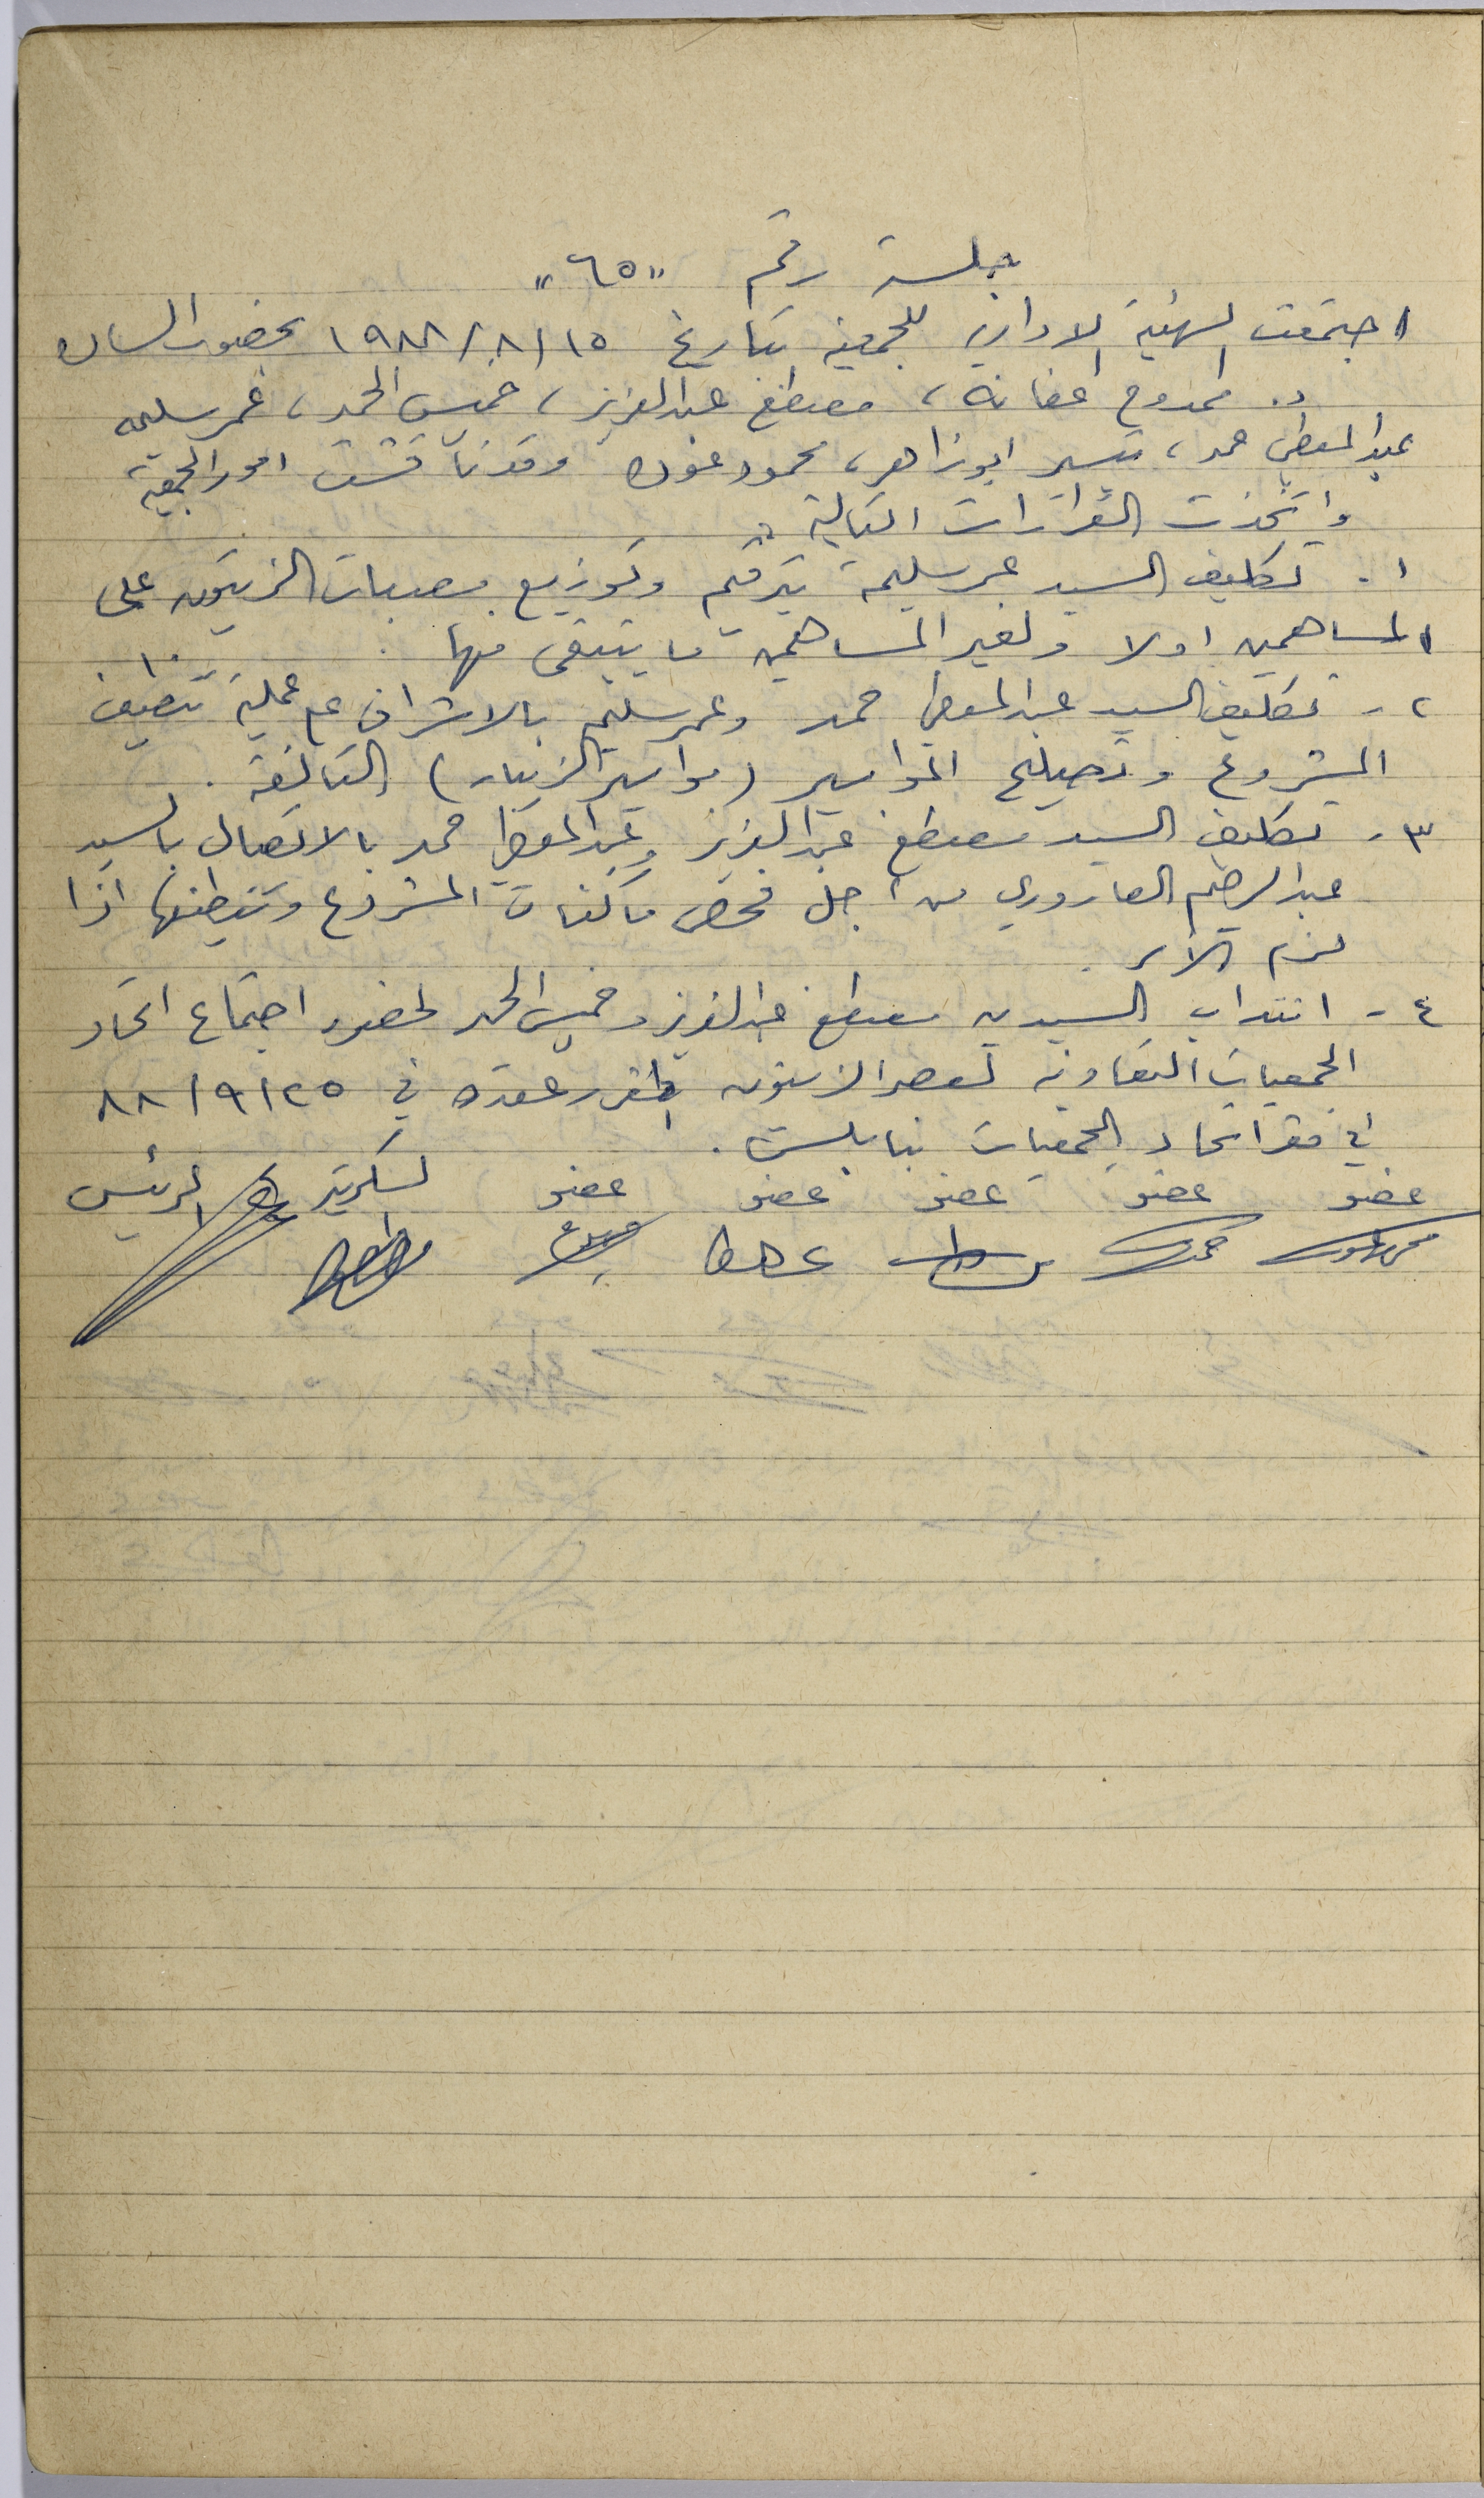 جلسة رقم "٦٥"
اجتمعت الهيئة الادارية للجمعية بتاريخ ١٥/٨/١٩٨٨ بحضور السادة
د. ممدوح اعفانه، مصطفى عبد العزيز، خميس الحمد، عمر سليمه
عبد المعطي حمد، تيسير ابو زاهر، محمود عوده وقد ناقشت امور الجمعية
واتخذت القرارات التالية :
١. تكليف السيد عمر سليمة بترقيم وتوزيع مصبات الزيتون على
المساهمين اولا ولغير المساهمين ما يتبقى منها .
٢ - تكليف السيد عبد المعطي حمد وعمر سليمه بالاشراف على عملية تنظيف
المشروع وتصليح المواسير (مواسير الزيبار) التالفة .
٣ - تكليف السيد مصطفى عبد العزيز وعبد المعطي حمد بالاتصال بالسيد
عبد الرحيم العاروري من اجل فحص ماكنات المشروع وتنظيفها اذا
لزم الامر .
٤ - انتداب السيدين مصطفى عبد العزيز وخميس الحمد لحضور اجتماع اتحاد
الجمعيات التعاونية لعصر الزيتون المقرر عقده في ٢٥/٩/٨٨
في مقر اتحاد الجمعيات بنابلس .
عضو عضو عضو عضو عضو السكرتير الرئيس
محمود عوده